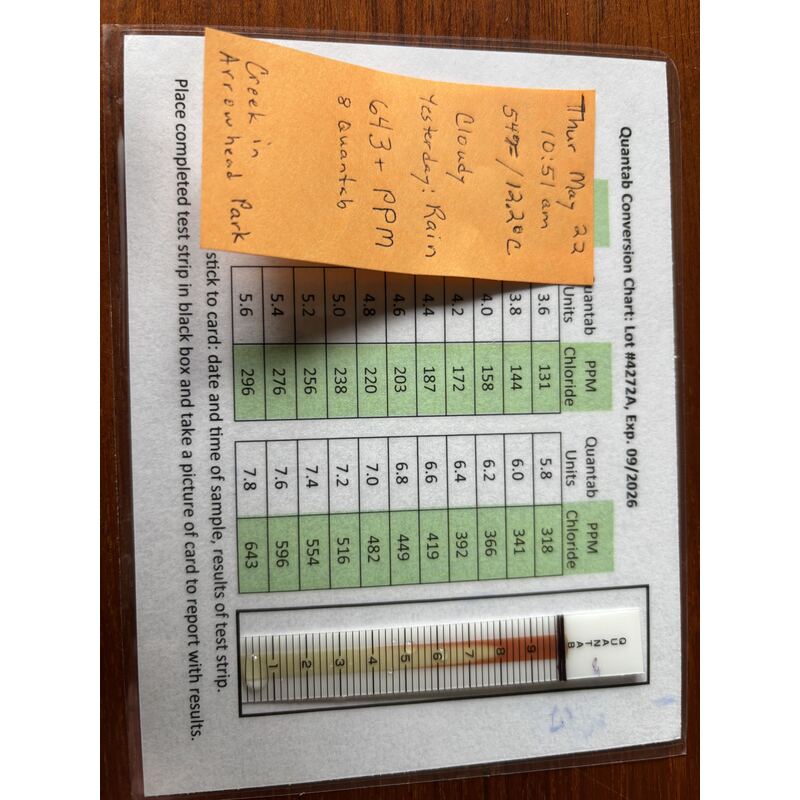 Quantab Conversion Chart: Lot #4272A, Exp. 09/2026
Thur May 22
10:51 am
54°F/12.2°C
Cloudy
Yesterday: Rain
643+ PPM
8 Quantab
Creek in
Arrowhead Park
Quantab Units PPM Chloride Quantab Units PPM Chloride
3.6 131 5.8 318
3.8 144 6.0 341
4.0 158 6.2 366
4.2 172 6.4 392
4.4 187 6.6 419
4.6 203 6.8 449
4.8 220 7.0 482
5.0 238 7.2 516
5.2 256 7.4 554
5.4 276 7.6 596
5.6 296 7.8 643
QUANTAB
9
8
7
6
5
4
3
2
1
stick to card: date and time of sample, results of test strip.
Place completed test strip in black box and take a picture of card to report with results.